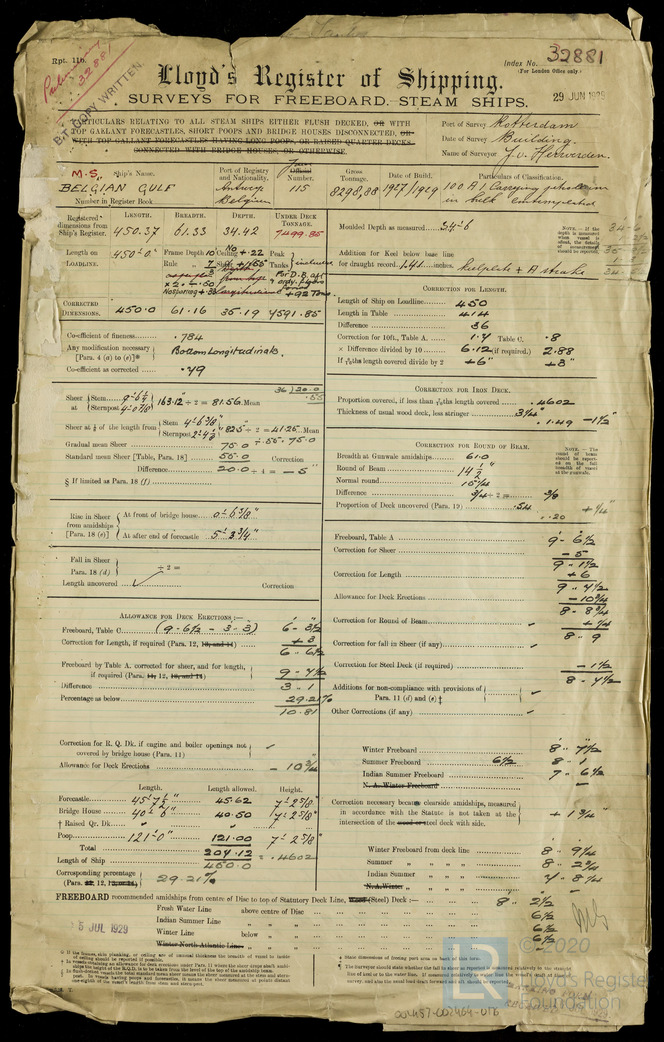 Rpt. 11b.
Preliminary 32881
B.T. COPY WRITTEN.
Index No. 32881
(For London Office only.)
Lloyd's Register of Shipping.
SURVEYS FOR FREEBOARD. STEAM SHIPS.
29 JUN 1929
PARTICULARS RELATING TO ALL STEAM SHIPS EITHER FLUSH DECKED, OR WITH
TOP GALLANT FORECASTLES, SHORT POOPS AND BRIDGE HOUSES DISCONNECTED, OR
WITH TOP GALLANT FORECASTLES HAVING LONG POOPS, OR RAISED QUARTER DECKS
CONNECTED WITH BRIDGE HOUSES, OR OTHERWISE.
Port of Survey Rotterdam
Date of Survey Building.
Name of Surveyor J. v. Herwerden.
M.S. Ship's Name. Port of Registry and Nationality. Official Number. Gross Tonnage. Date of Build. Particulars of Classification.
BELGIAN GULF Antwerp Belgian 115 8298,88 1927/1929 100 A1 Carrying petroleum in bulk contemplated
Number in Register Book
Registered dimensions from Ship's Register. LENGTH. BREADTH. DEPTH. UNDER DECK TONNAGE.
450.37 61.33 34.42 7499.85
Length on LOADLINE. 450'-0" Frame Depth 10 Rule 7
No +.22 Peak Tanks included
CORRECTED DIMENSIONS. 450.0 61.16 35.19 7591.85
Co-efficient of fineness .784
Any modification necessary [Para. 4 (a) to (e)]* Bottom Longitudinals.
Co-efficient as corrected .79
Sheer at Stem 9'-6½ Sternpost 4'-0⅞ 163.12 ÷ 2 = 81.56 Mean
Sheer at ⅛ of the length from Stem 4'-6⅜" Sternpost 82.5 ÷ 2 = 41.25 Mean
Gradual mean Sheer 75.0 ÷ .55 = 75.0
Standard mean Sheer [Table, Para. 18] 55.0 Correction
Difference 20.0 ÷ 4 = - 5"
§ If limited as Para. 18 (f)
Rise in Sheer from amidships [Para. 18 (e)]
At front of bridge house 0'-6⅜"
At after end of forecastle 5'-3¾"
Fall in Sheer Para. 18 (d) ÷ 2 =
Length uncovered Correction
ALLOWANCE FOR DECK ERECTIONS:—
Freeboard, Table C (9-6½ - 3-3) 6-3½
Correction for Length, if required (Para. 12, 13, and 14) + 3
6-6½
Freeboard by Table A. corrected for sheer, and for length, if required (Para. 11, 12, 13, and 14) 9-7½
Difference 3-1
Percentage as below 29.21%
10.81
Correction for R. Q. Dk. if engine and boiler openings not covered by bridge house (Para. 11)
Allowance for Deck Erections - 10¾
Length. Length allowed. Height.
Forecastle 45'7½" 45.62 7'-2⅝"
Bridge House 40'-6" 40.50 7'-2⅝"
† Raised Qr. Dk.
Poop 121'-0" 121.00 7'-2⅝"
Total 207.12
Length of Ship 450.0 = .4602
Corresponding percentage (Para. 12, 13, or 14) 29.21%
Moulded Depth as measured 34-6
Addition for Keel below base line for draught record 1.41 inches. keelplate + A strake
CORRECTION FOR LENGTH.
Length of Ship on Loadline 450
Length in Table 414
Difference 36
Correction for 10ft., Table A. 1.7 Table C. .8
× Difference divided by 10 6.12 (if required.) 2.88
If 6/10ths length covered divide by 2 +6" +3"
CORRECTION FOR IRON DECK.
Proportion covered, if less than 7/10ths length covered .4602
Thickness of usual wood deck, less stringer 3¼"
1.49 -1½"
CORRECTION FOR ROUND OF BEAM.
Breadth at Gunwale amidships 61.0
Round of Beam 14½"
Normal round
Difference ¾ ÷ 2 = ⅜
Proportion of Deck uncovered (Para. 19) .54
.20 + ¼"
Freeboard, Table A 9-6½
Correction for Sheer - 5
9-1½
Correction for Length + 6
9-7½
Allowance for Deck Erections - 10¾
8-8¾
Correction for Round of Beam + ¼
8-9
Correction for fall in Sheer (if any)
Correction for Steel Deck (if required) - 1½
8-7½
Additions for non-compliance with provisions of Para. 11 (d) and (e) ‡
Other Corrections (if any)
Winter Freeboard 8-7½
Summer Freeboard 6½ 8-1
Indian Summer Freeboard 7-6½
N. A. Winter Freeboard
Correction necessary because clearside amidships, measured in accordance with the Statute is not taken at the intersection of the wood or steel deck with side. + 1¾"
Winter Freeboard from deck line 8-9¼
Summer 8-2¾
Indian Summer 7-8¼
N. A. Winter
FREEBOARD recommended amidships from centre of Disc to top of Statutory Deck Line, Wood (Steel) Deck:— 8 - 2½
Fresh Water Line above centre of Disc 6½
Indian Summer Line 6½
Winter Line below 6½
Winter North Atlantic Line 6½
5 JUL 1929
© 2020
LR
Lloyd's Register Foundation